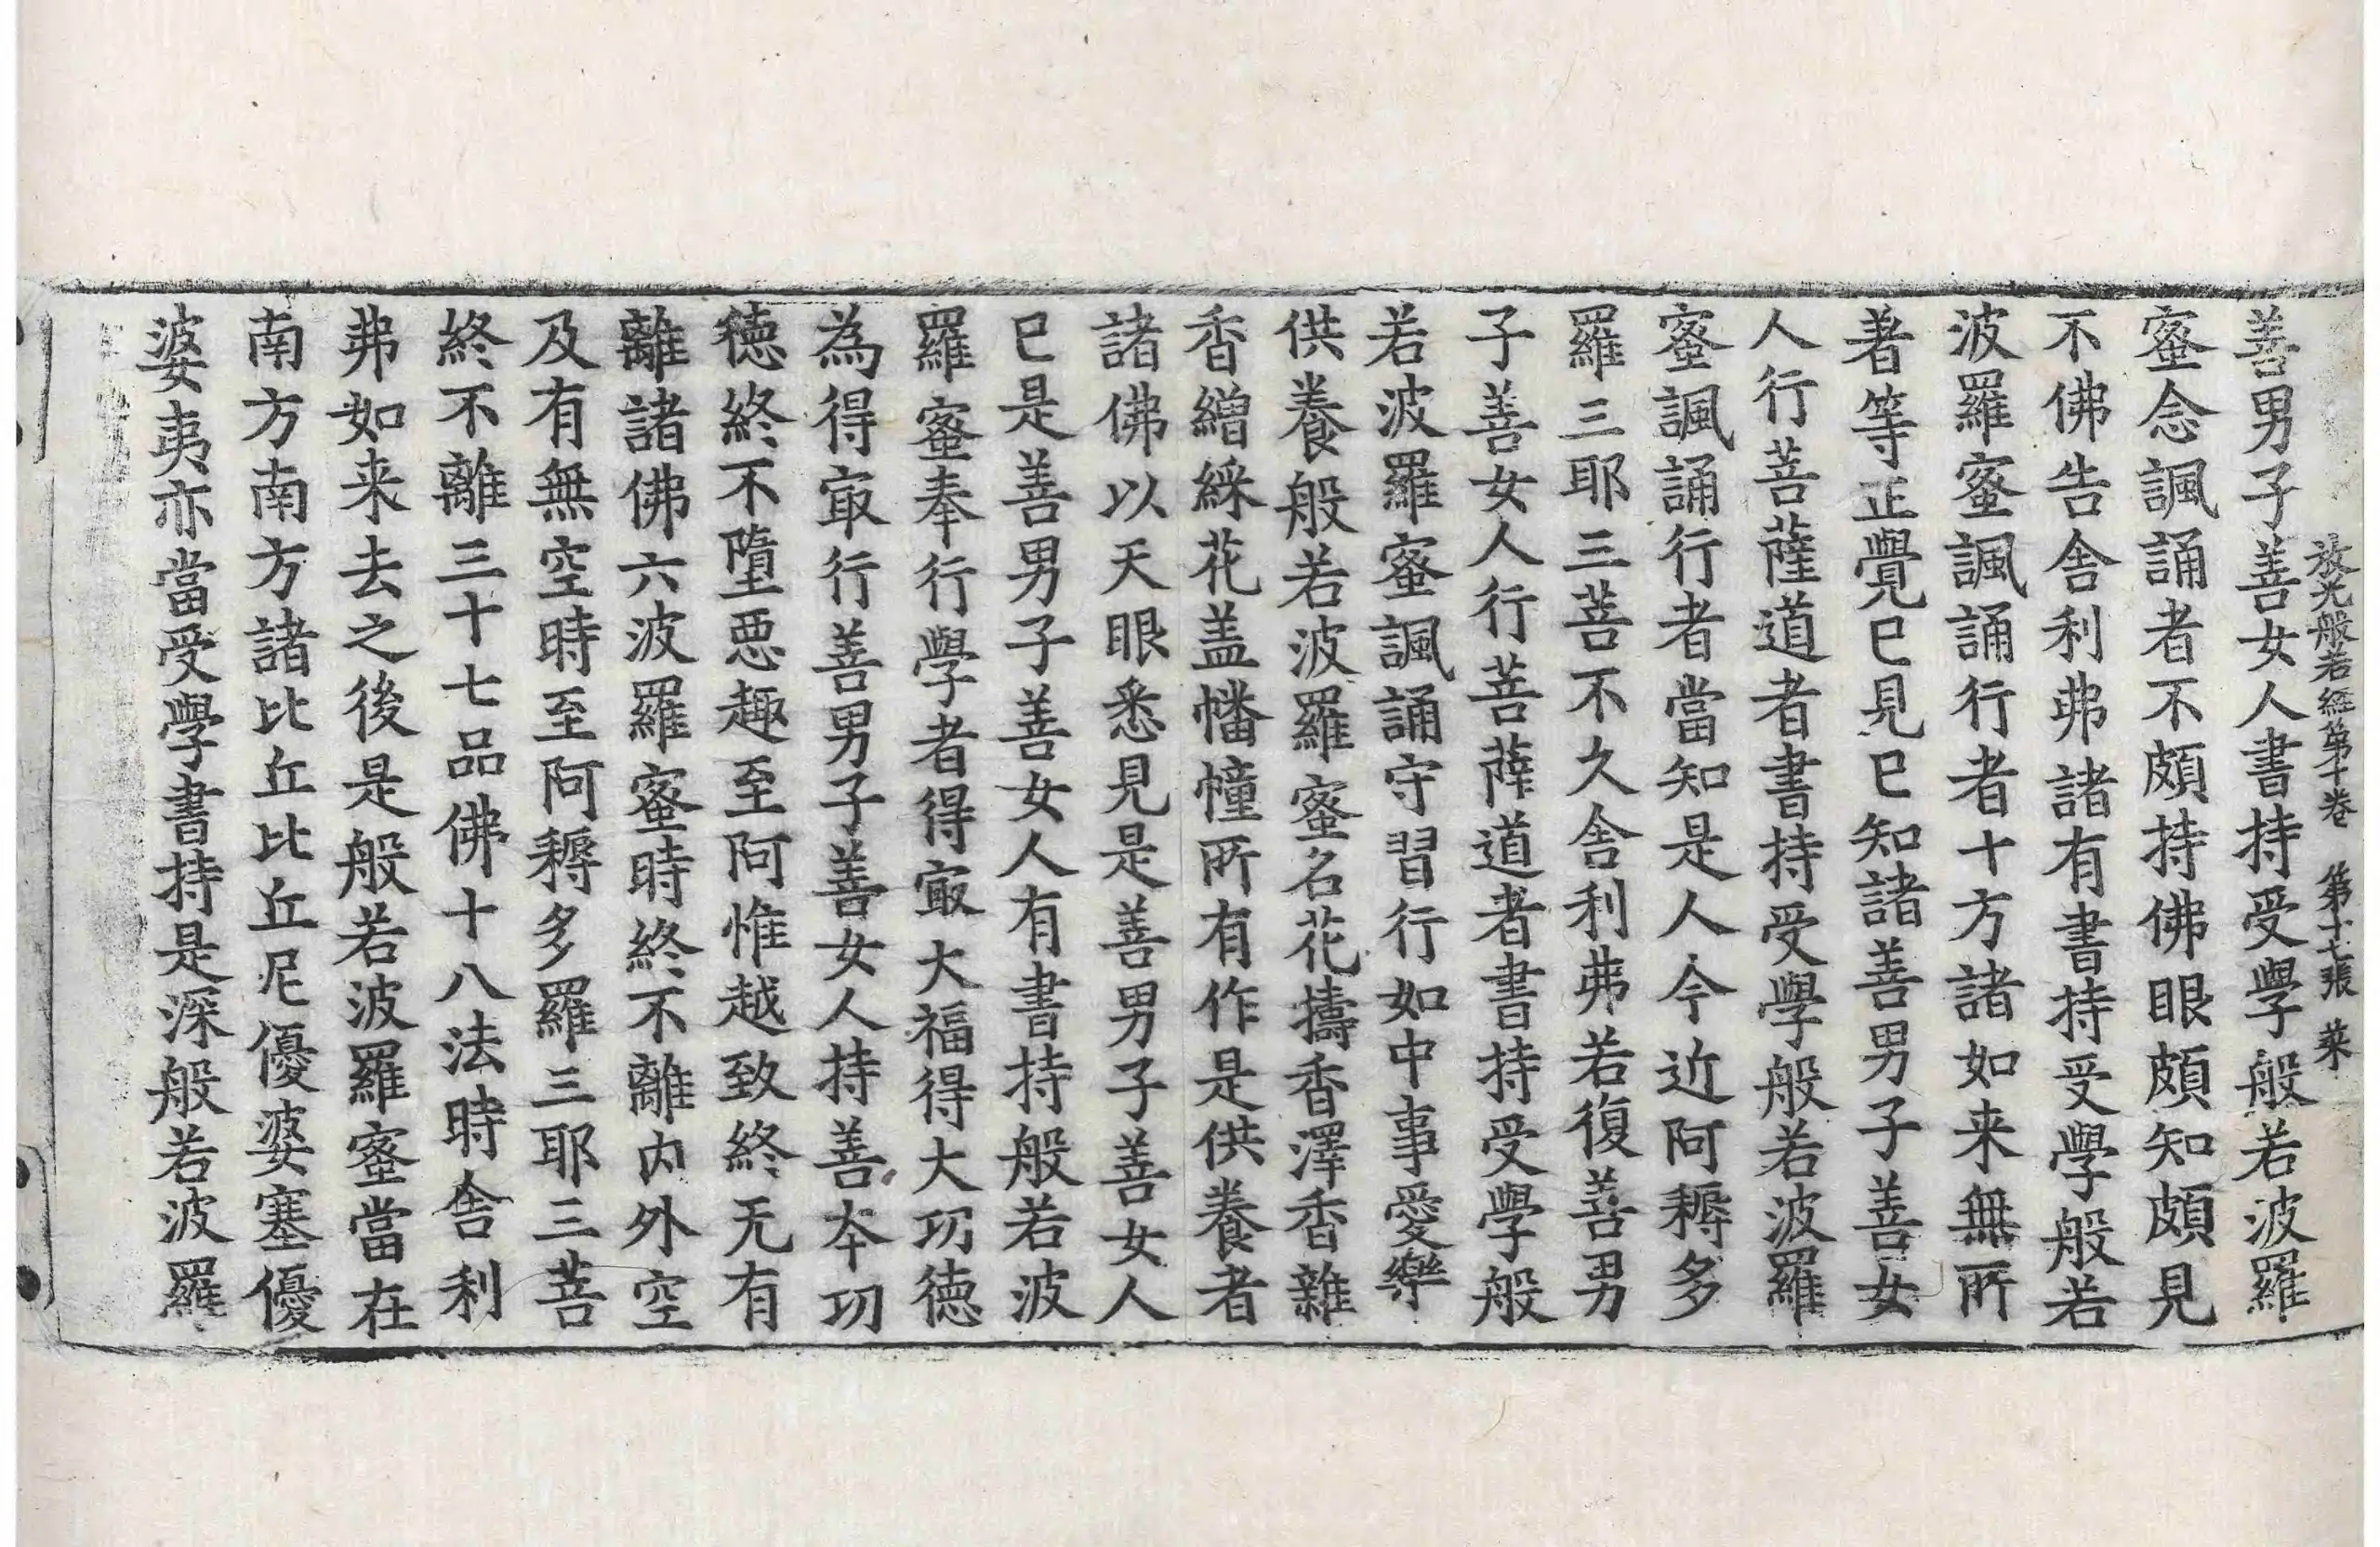 放光般若經第十卷 第十七張 菜
善男子善女人書持受學般若波羅
蜜念諷誦者不頗持佛眼頗知頗見
不佛告舍利弗諸有書持受學般若
波羅蜜諷誦行者十方諸如来無所
著等正覺已見已知諸善男子善女
人行菩薩道者書持受學般若波羅
蜜諷誦行者當知是人今近阿耨多
羅三耶三菩不久舍利弗若復善男
子善女人行菩薩道者書持受學般
若波羅蜜諷誦守習行如中事愛樂
供養般若波羅蜜名花擣香澤香雜
香繒綵花盖幡幢所有作是供養者
諸佛以天眼悉見是善男子善女人
已是善男子善女人有書持般若波
羅蜜奉行學者得㝡大福得大功徳
為得㝡行善男子善女人持善本功
徳終不墮惡趣至阿惟越致終无有
離諸佛六波羅蜜時終不離内外空
及有無空時至阿耨多羅三耶三菩
終不離三十七品佛十八法時舍利
弗如来去之後是般若波羅蜜當在
南方南方諸比丘比丘尼優婆塞優
婆夷亦當受學書持是深般若波羅